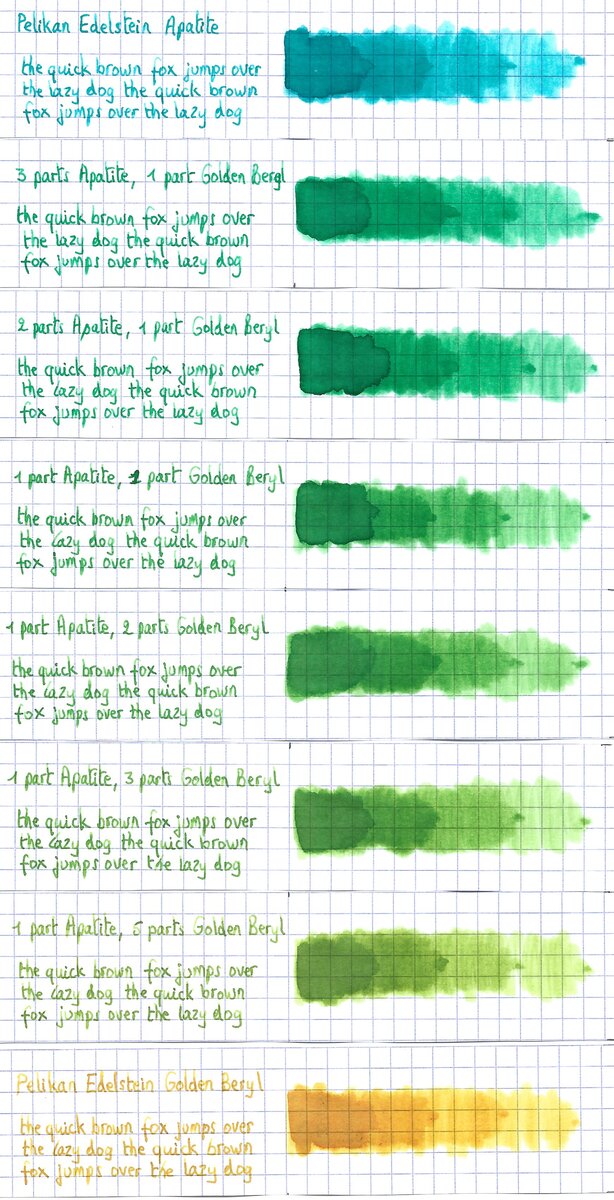 Pelikan Edelstein Apatite
the quick brown fox jumps over
the lazy dog the quick brown
fox jumps over the lazy dog
3 parts Apatite, 1 part Golden Beryl
the quick brown fox jumps over
the lazy dog the quick brown
fox jumps over the lazy dog
2 parts Apatite, 1 part Golden Beryl
the quick brown fox jumps over
the lazy dog the quick brown
fox jumps over the lazy dog
1 part Apatite, 1 part Golden Beryl
the quick brown fox jumps over
the lazy dog the quick brown
fox jumps over the lazy dog
1 part Apatite, 2 parts Golden Beryl
the quick brown fox jumps over
the lazy dog the quick brown
fox jumps over the lazy dog
1 part Apatite, 3 parts Golden Beryl
the quick brown fox jumps over
the lazy dog the quick brown
fox jumps over the lazy dog
1 part Apatite, 5 parts Golden Beryl
the quick brown fox jumps over
the lazy dog the quick brown
fox jumps over the lazy dog
Pelikan Edelstein Golden Beryl
the quick brown fox jumps over
the lazy dog the quick brown
fox jumps over the lazy dog